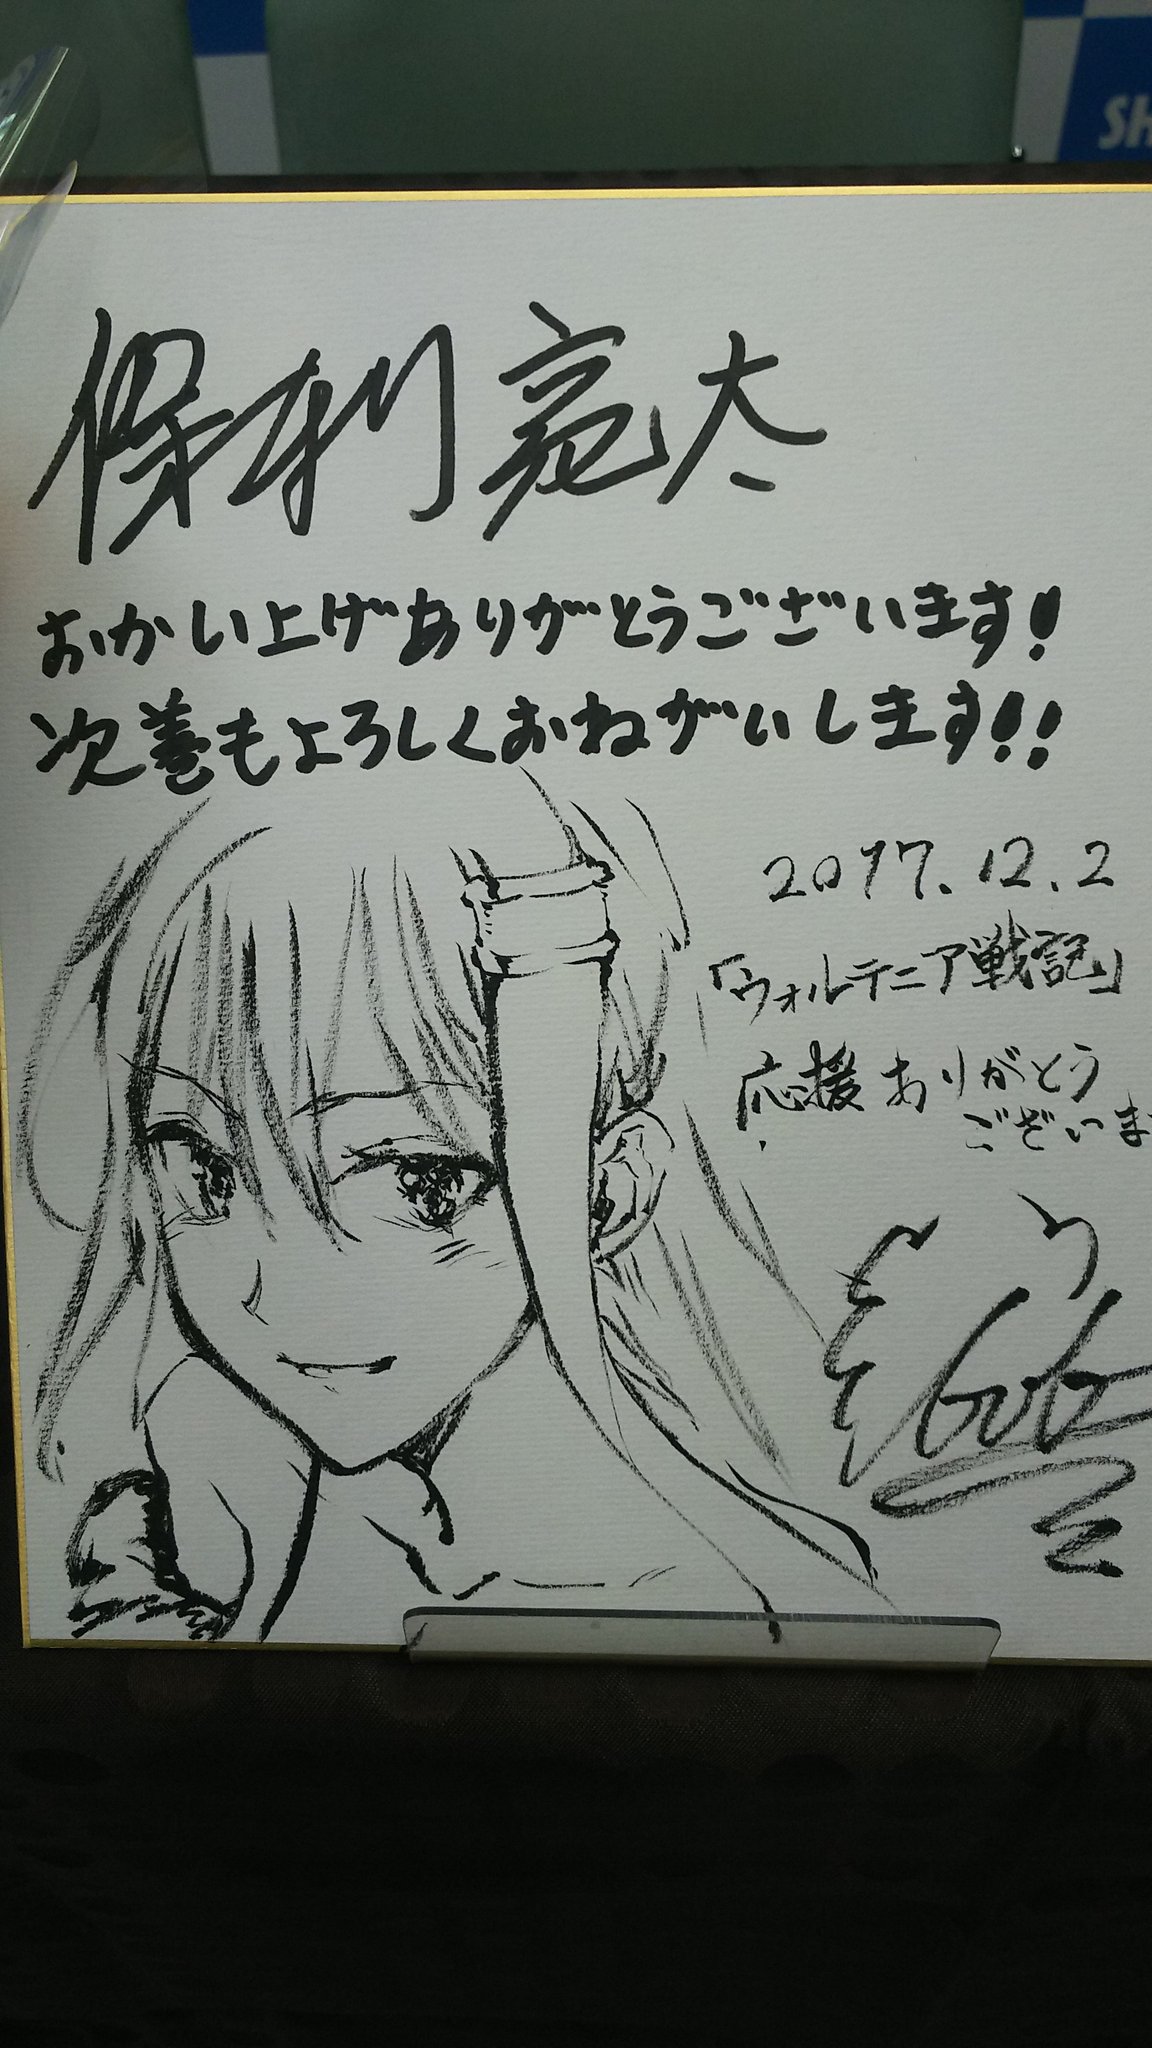 SH
保利亮太
おかい上げありがとうございます!
次巻もよろしくおねがいします!!
2017.12.2
「ウォルテニア戦記」
応援ありがとう
ございま